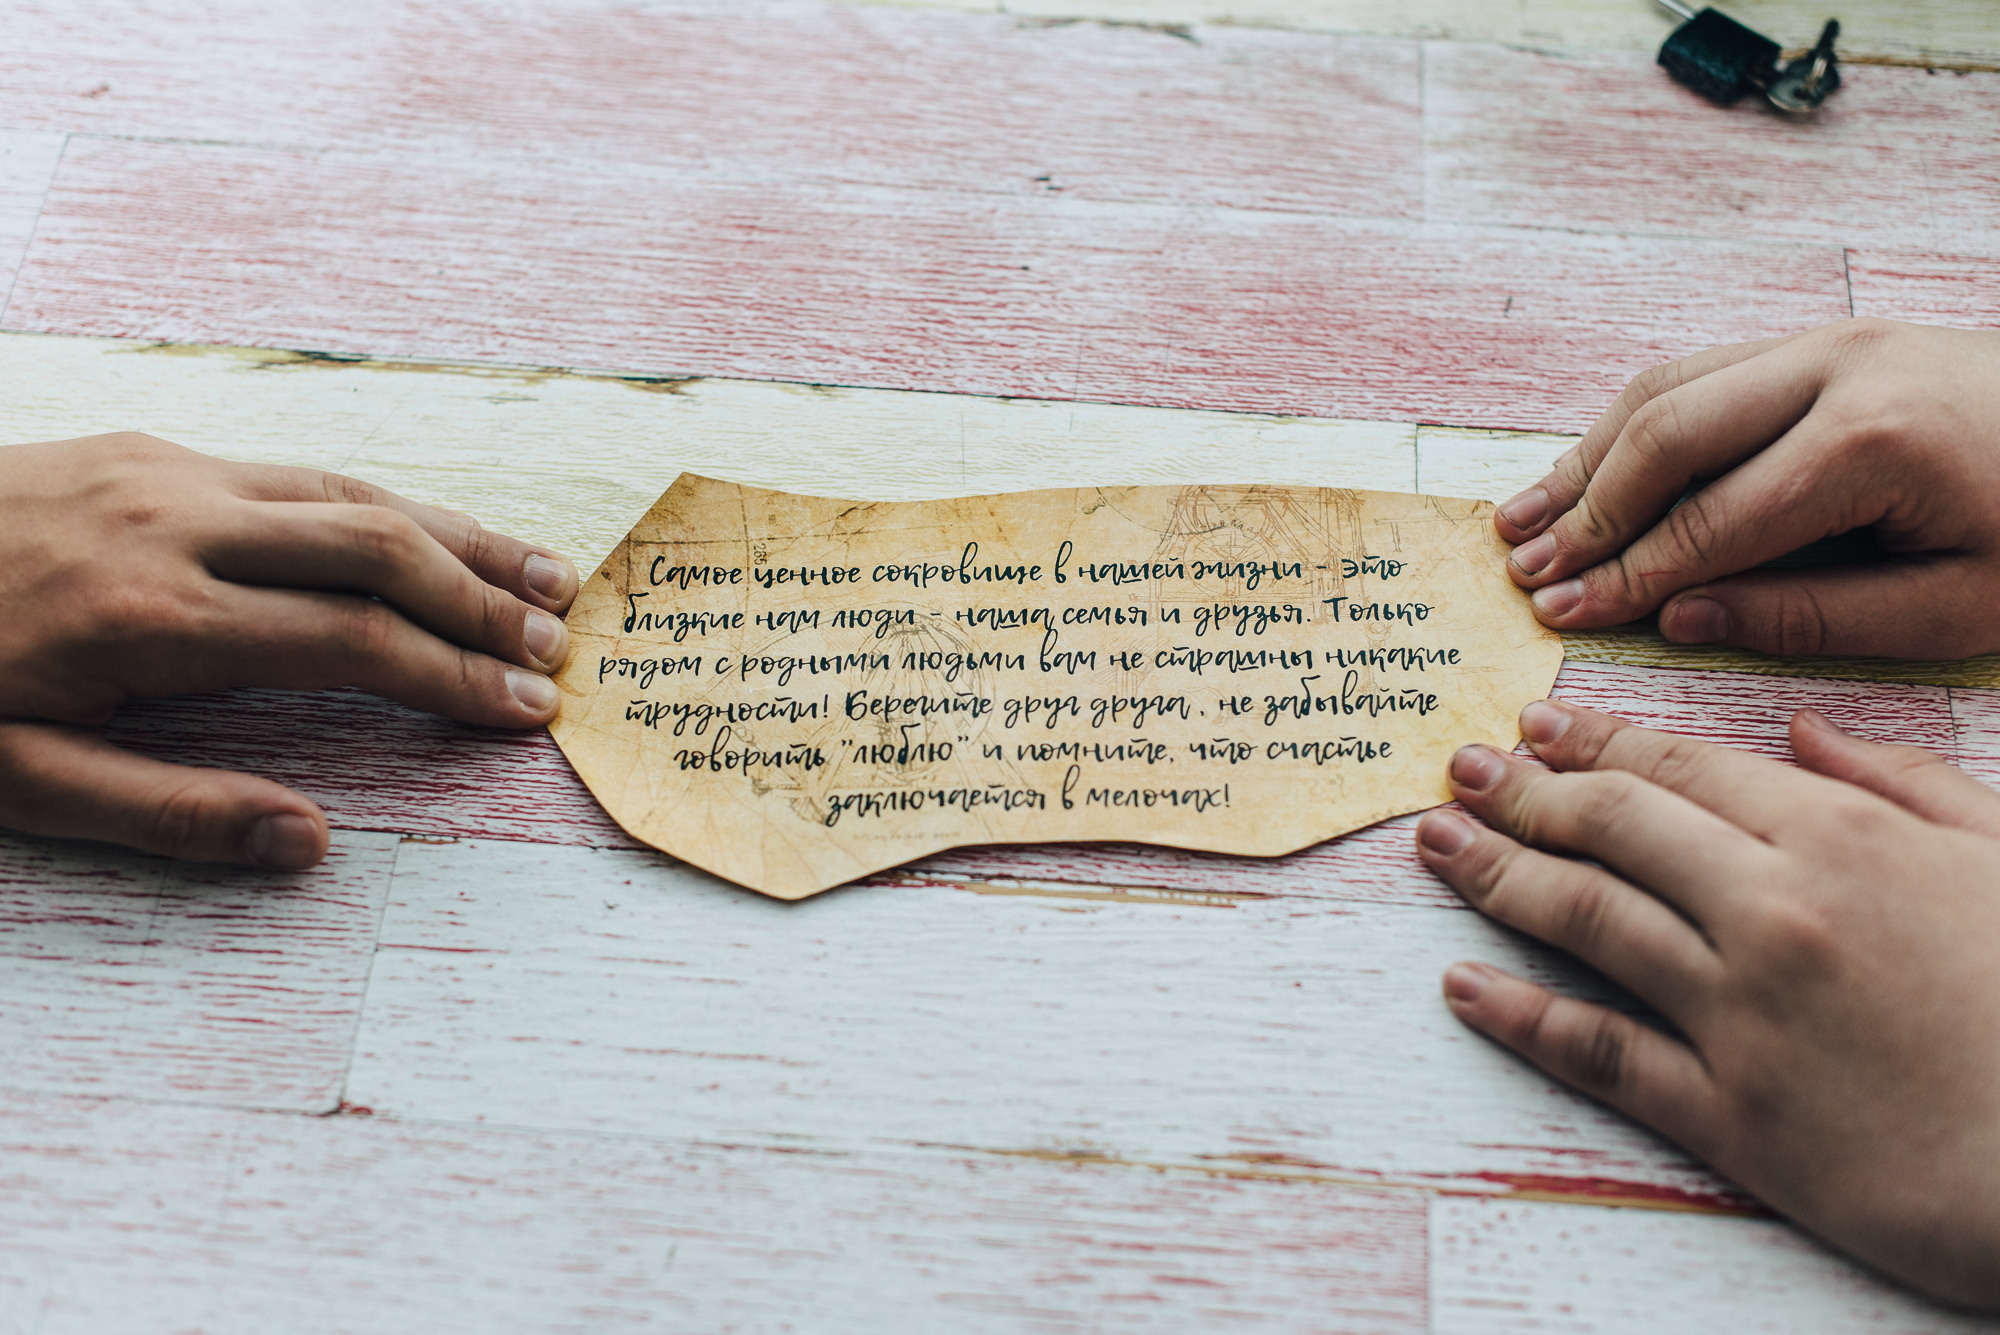 Самое ценное сокровище в нашей жизни - это
близкие нам люди - наша семья и друзья. Только
рядом с родными людьми вам не страшны никакие
трудности! Берегите друг друга, не забывайте
говорить "люблю" и помните, что счастье
заключается в мелочах!